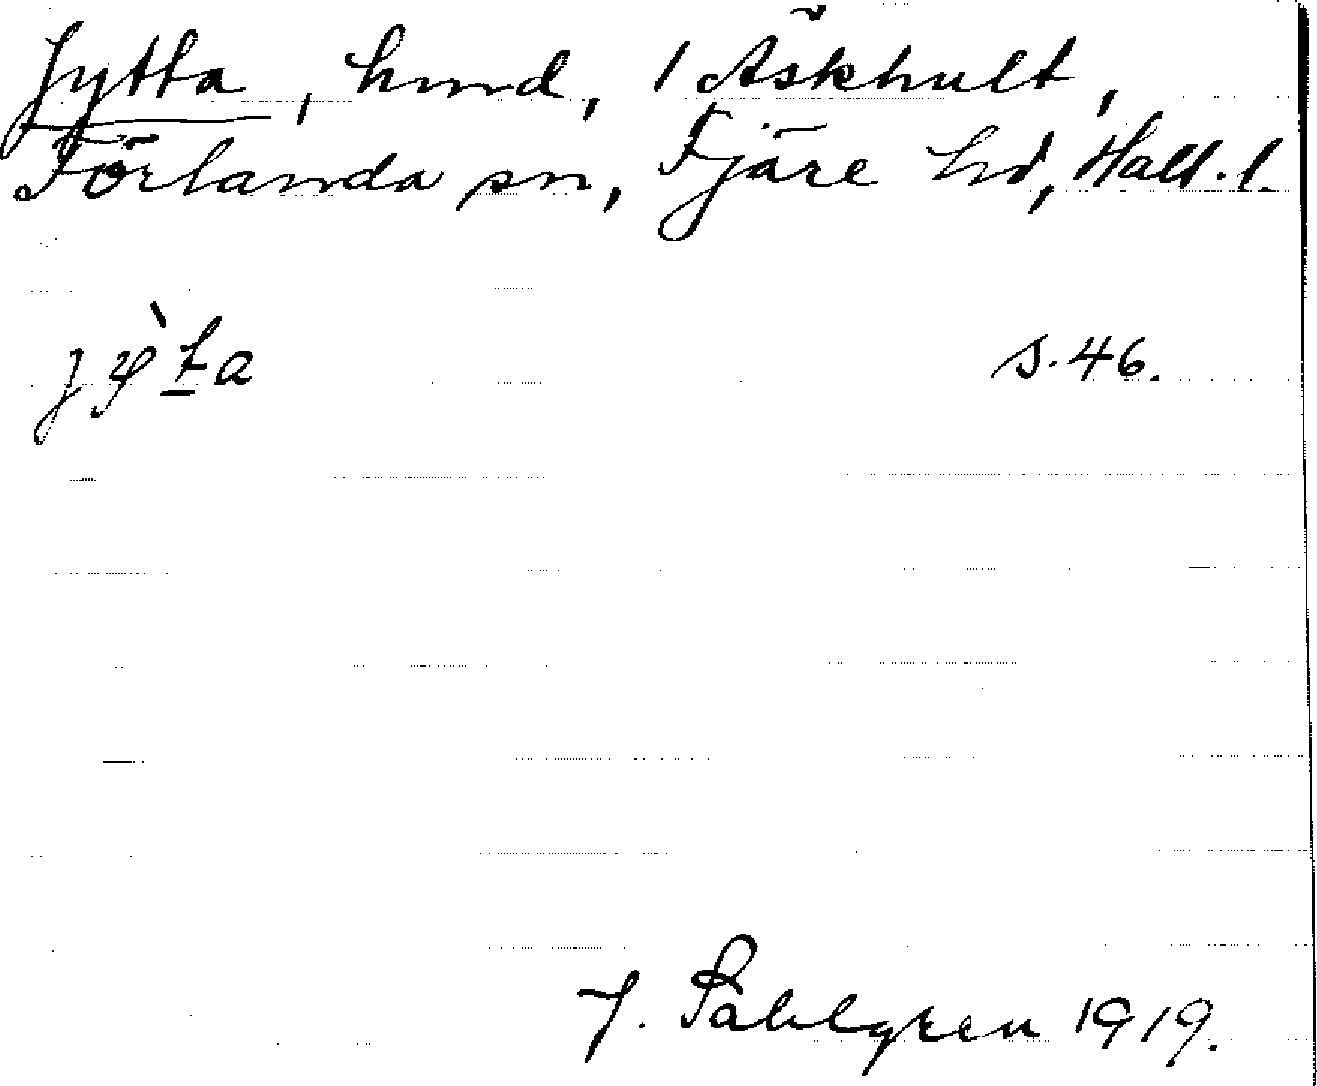 Jytta, hund, i Äskhult,
Förlanda sn, Fjäre hd, Hall. l.
s. 46.
J. Sahlgren 1919.